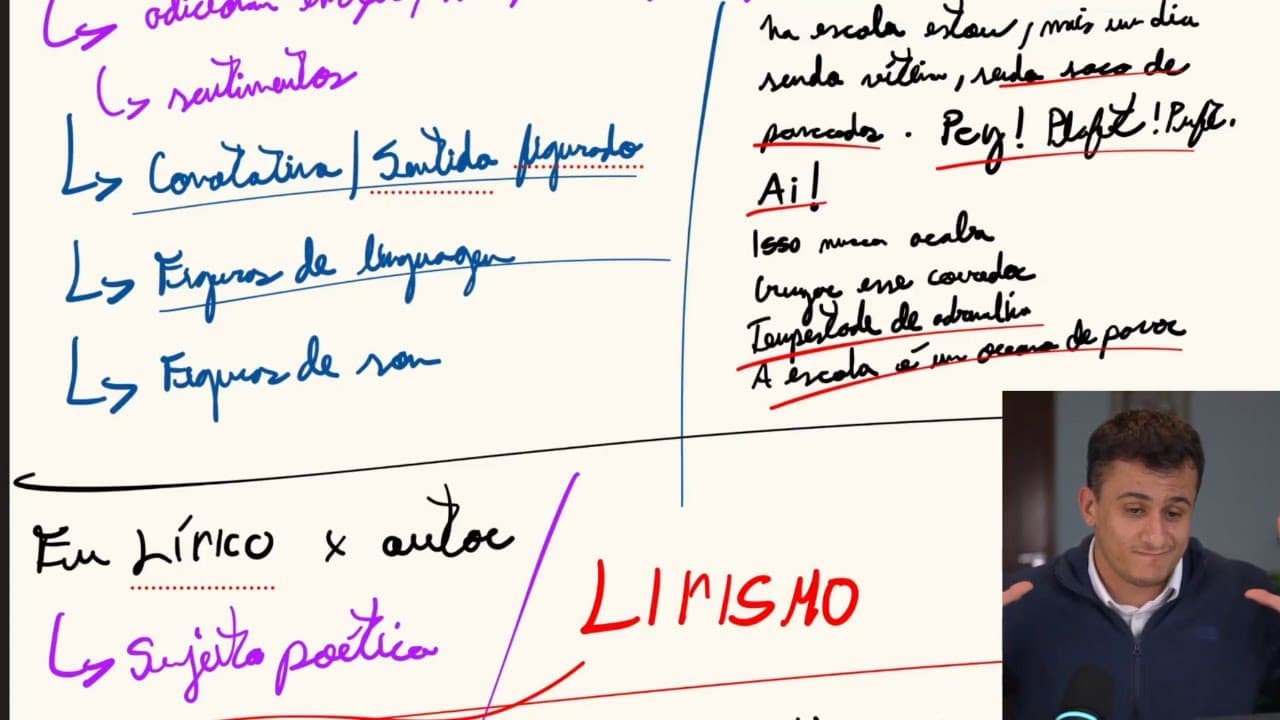 ↳ adicionar
↳ sentimentos
↳ Conotativa / Sentido figurado
↳ Figuras de linguagem
↳ Figuras de som
na escola estou, mais um dia
sendo vítima, sendo saco de
pancadas. Pey! Plaft! Puft.
Ai!
Isso nunca acaba
Cruzar esse corredor
Tempestade de adrenalina
A escola é um oceano de pavor
Eu Lírico x autor
↳ Sujeito poético
LIRISMO